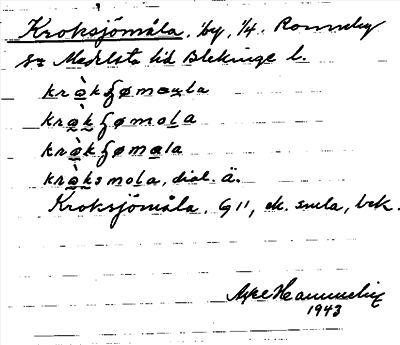 Kroksjömåla, by, 1/4. Ronneby
sn Medelsta hd Blekinge l.
kròkʃømoula
kròkʃømola
kròkʃømola
kròksmola, dial. ä.
Kroksjömåla. G11, ek. smla, bek.
1943